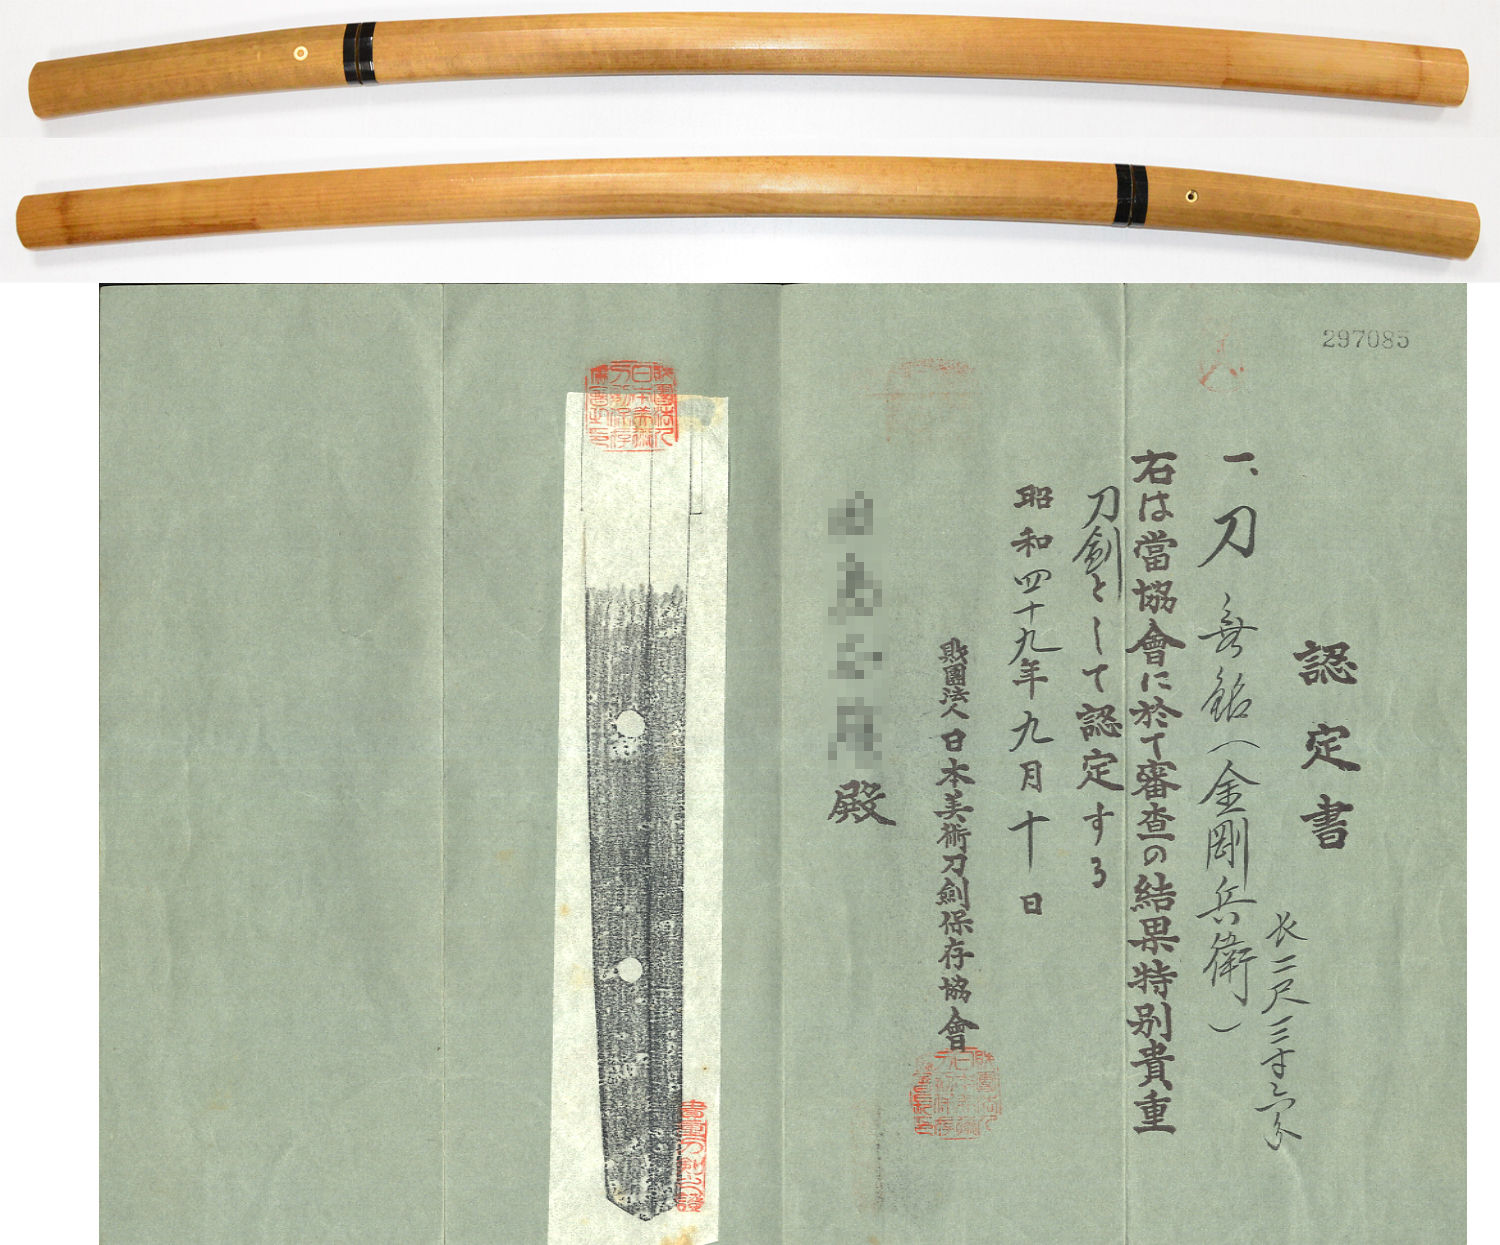 297085
認定書
一、刀 無銘(金剛兵衛)
長二尺三寸六分
右は當協會に於て審査の結果特別貴重
刀劍として認定する
昭和四十九年九月十日
財團法人日本美術刀劍保存協會
殿